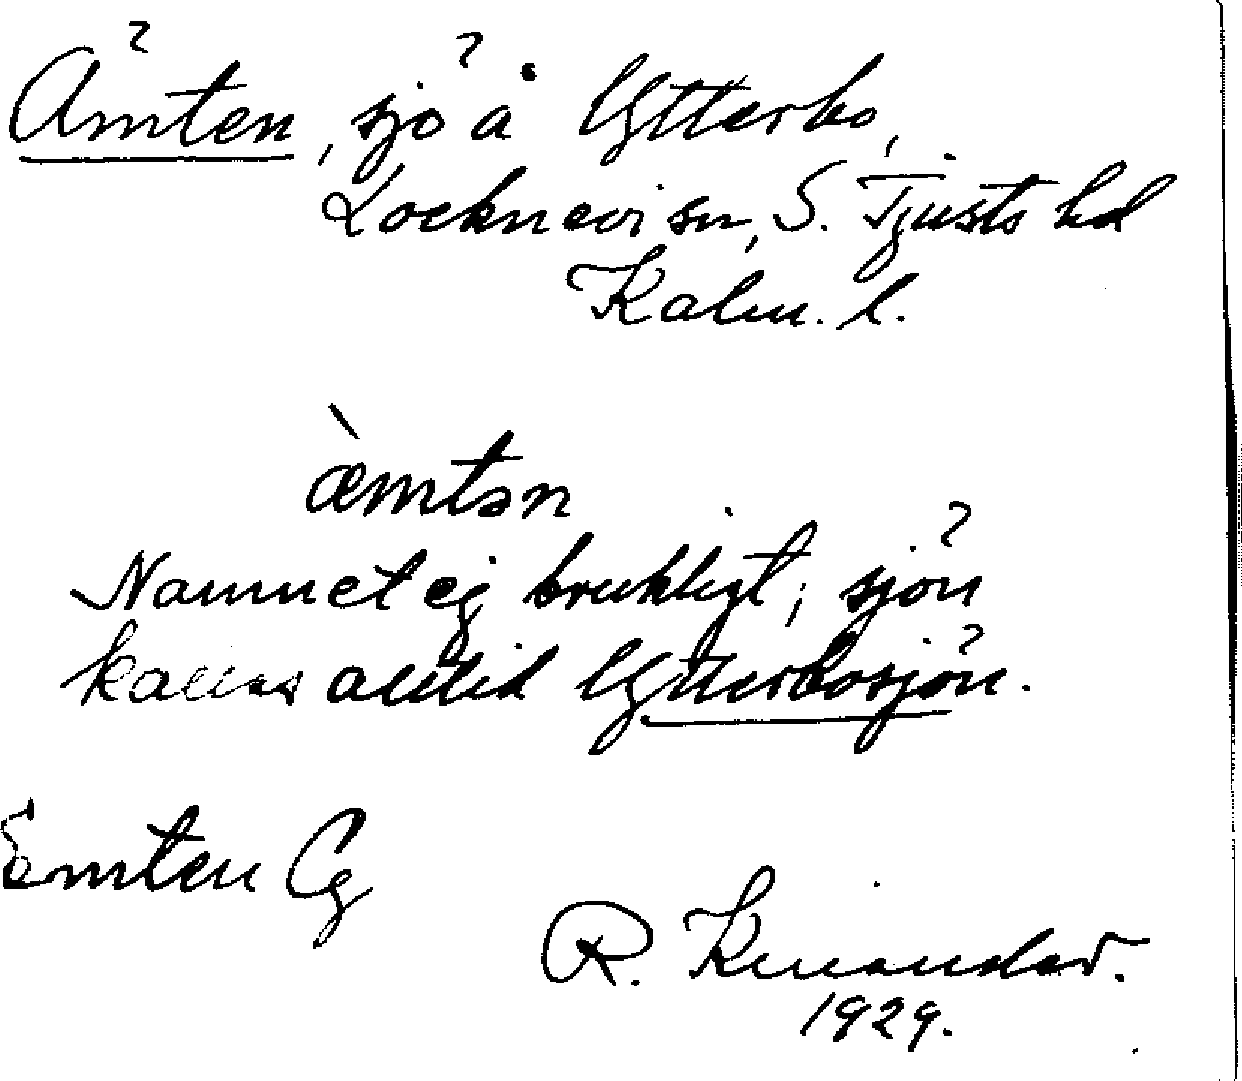 Ämten, sjö å Ytterbo,
Locknevi sn, S. Tjusts hd
Kalm. l.
æ̀mtən
Namnet ej brukligt; sjön
kallas alltid Ytterbosjön.
Emten Cg
R. Kinander.
1929.